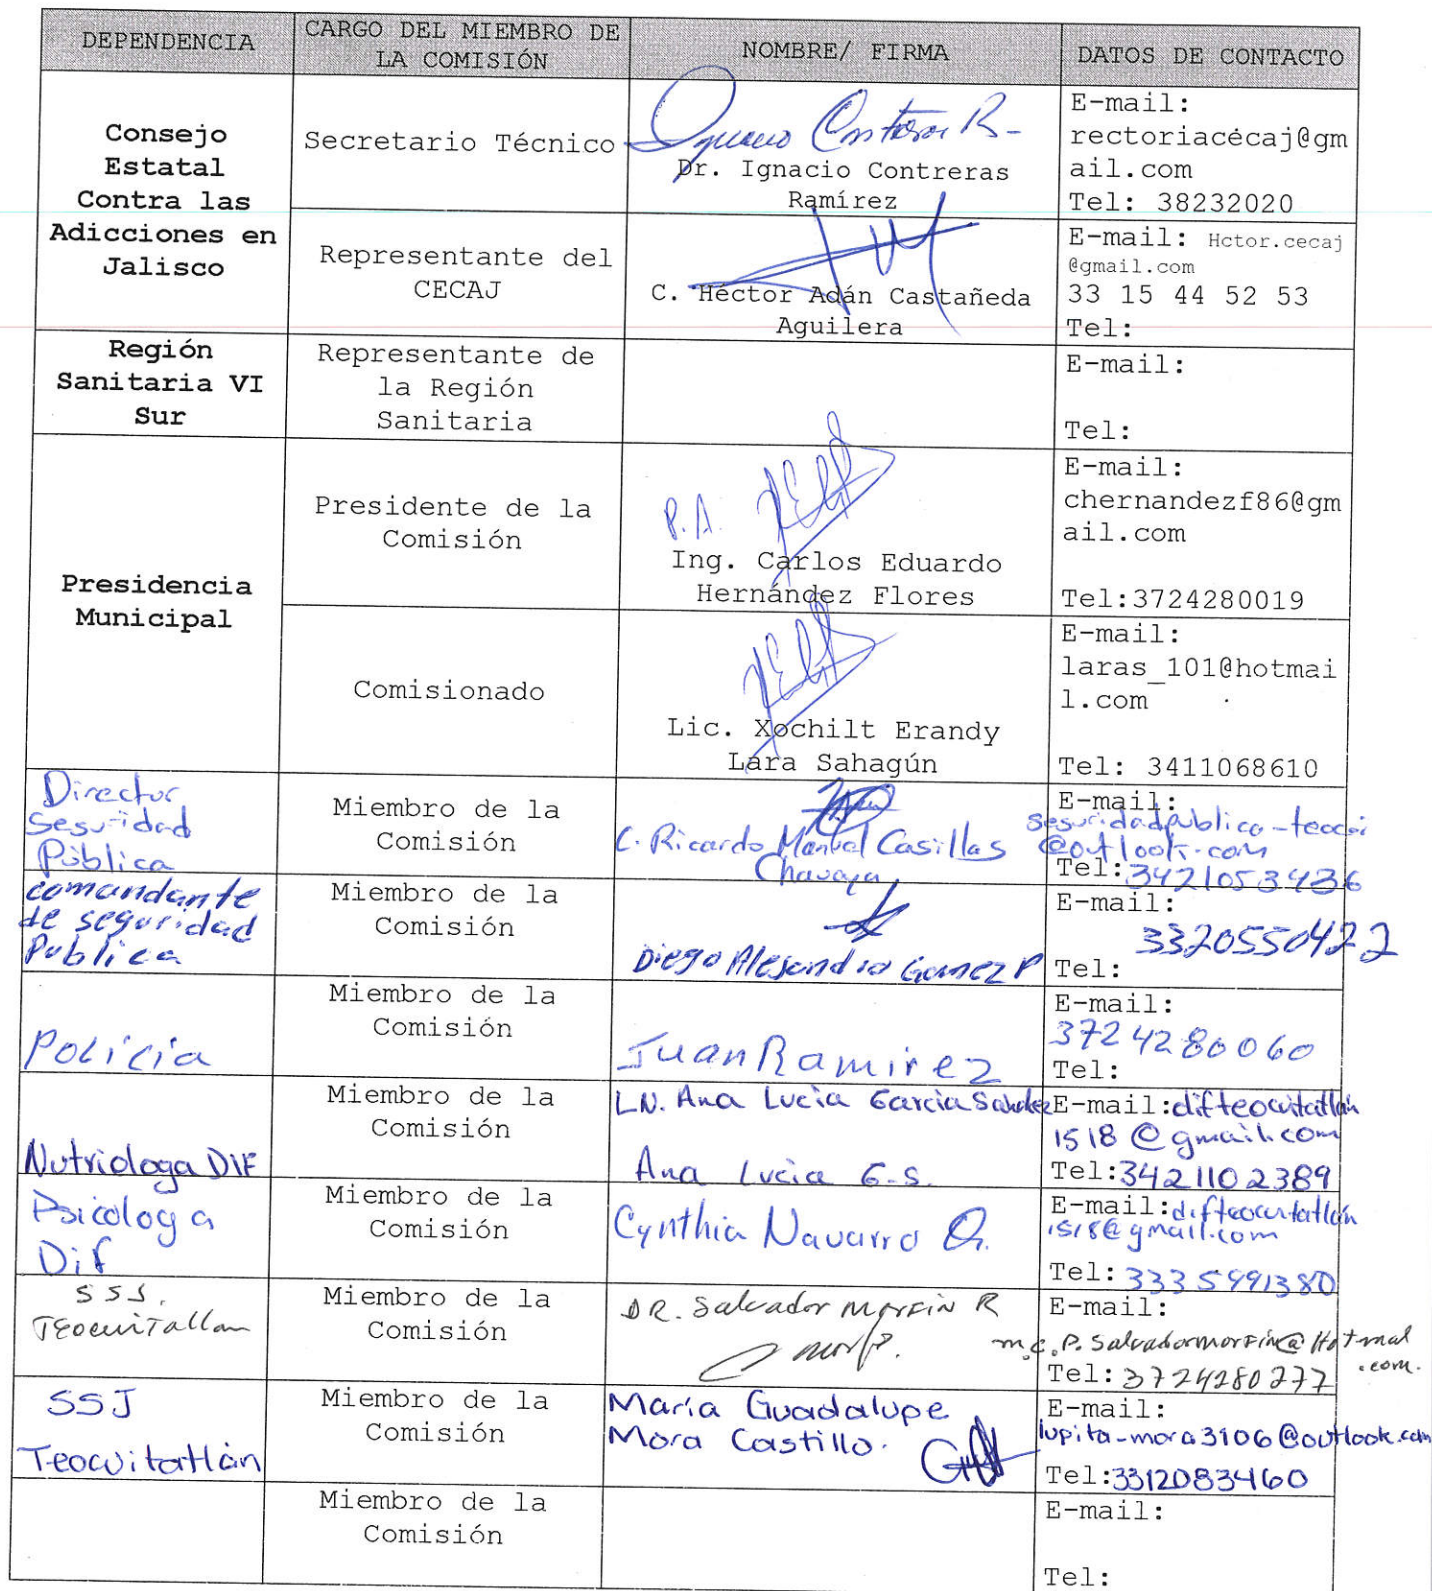 DEPENDENCIA
CARGO DEL MIEMBRO DE
LA COMISIÓN
NOMBRE/ FIRMA
DATOS DE CONTACTO
Consejo
Estatal
Contra las
Adicciones en
Jalisco
Secretario Técnico
Dr. Ignacio Contreras
Ramírez
E-mail:
rectoriacecaj@gm
ail.com
Tel: 38232020
Representante del
CECAJ
C. Héctor Adán Castañeda
Aguilera
E-mail: Hctor.cecaj
@gmail.com
33 15 44 52 53
Tel:
Región
Sanitaria VI
Sur
Representante de
la Región
Sanitaria
E-mail:
Tel:
Presidencia
Municipal
Presidente de la
Comisión
P.A.
Ing. Carlos Eduardo
Hernández Flores
E-mail:
chernandezf86@gm
ail.com
Tel:3724280019
Comisionado
Lic. Xochilt Erandy
Lara Sahagún
E-mail:
laras_101@hotmai
l.com
Tel: 3411068610
Director
Seguridad
Pública
Miembro de la
Comisión
C. Ricardo Manuel Casillas
E-mail:
@outlook.com
Tel:3421053436
comandante
de seguridad
Publica
Miembro de la
Comisión
Diego Alejandro Gomez P
E-mail:
3320550422
Tel:
Policía
Miembro de la
Comisión
Juan Ramirez
E-mail:
3724280060
Tel:
Nutriologa DIF
Miembro de la
Comisión
LN. Ana Lucia Garcia Sanchez
Ana Lucia G.S.
E-mail:difteocuitatlan
1518@gmail.com
Tel:3421102389
Psicologa
Dif
Miembro de la
Comisión
Cynthia Navarro O.
E-mail:difteocuitatlan
1518@gmail.com
Tel:3335991380
SSJ.
Teocuitatlan
Miembro de la
Comisión
DR. Salvador Morfin R
E-mail:
m.c.P.Salvadormorfin@Hotmal
.com.
Tel:3724280277
SSJ
Teocuitatlán
Miembro de la
Comisión
María Guadalupe
Mora Castillo.
E-mail:
lupita-mora3106@outlook.com
Tel:3312083460
Miembro de la
Comisión
E-mail:
Tel: